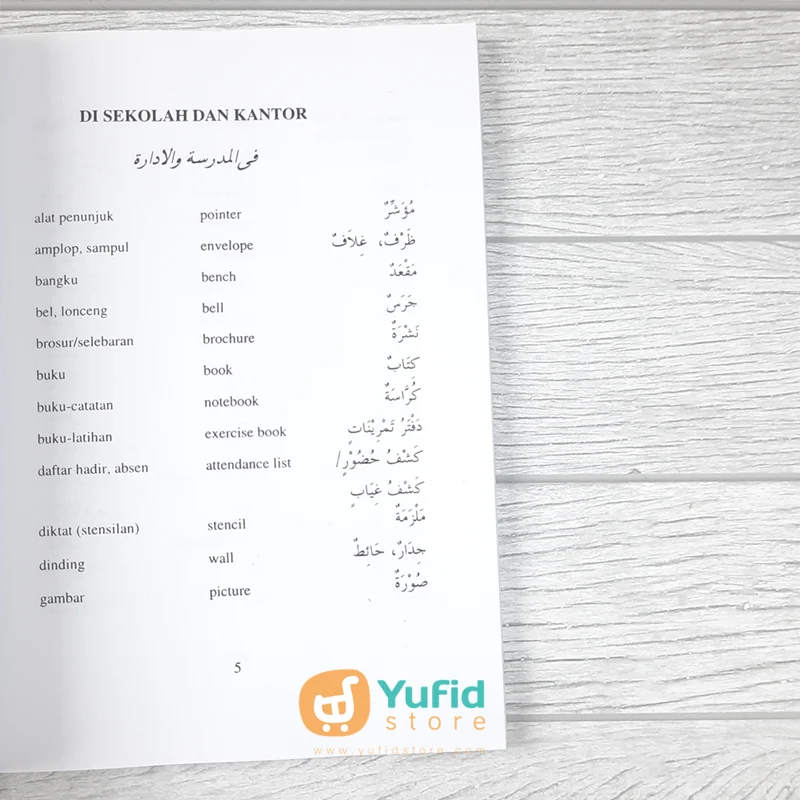 DI SEKOLAH DAN KANTOR
فى المدرسة والادارة
alat penunjuk pointer مُؤَشِّرٌ
amplop, sampul envelope ظَرْفٌ، غِلَافٌ
bangku bench مَقْعَدٌ
bel, lonceng bell جَرَسٌ
brosur/selebaran brochure نَشْرَةٌ
buku book كِتَابٌ
buku-catatan notebook كُرَّاسَةٌ
buku-latihan exercise book دَفْتَرُ تَمْرِيْنَاتٍ
daftar hadir, absen attendance list كَشْفُ حُضُوْرٍ/
كَشْفُ غِيَابٍ
diktat (stensilan) stencil مَلْزَمَةٌ
dinding wall جِدَارٌ، حَائِطٌ
gambar picture صُوْرَةٌ
5
Yufid
store
www.yufidstore.com